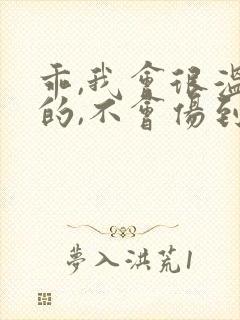 乖,我會很溫
的,不會傷到
夢入洪荒1